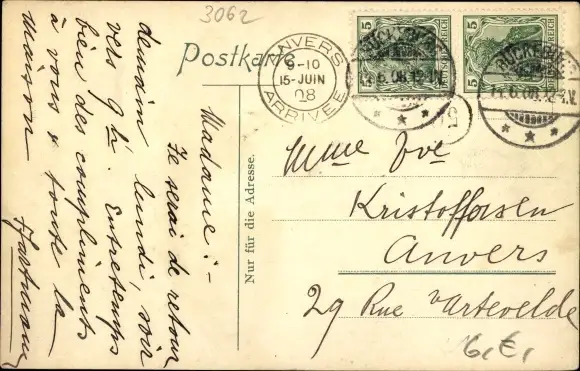 3062
Postkarte
ANVERS
9-10
15-JUIN
08
ARRIVÉE
5
5
BÜCKEBURG
14.6.08.12-1V.
BÜCKEBURG
14.6.08.12-1V.
51
Madame:-
Je serai de retour
demain lundi, soir
vers 9 h. Entretemps
bien des compliments
à vous & toute la
maison
Hartmann
Nur für die Adresse.
Mme Vve
Kristoffersen
Anvers
29 Rue v Artevelde
6,€,